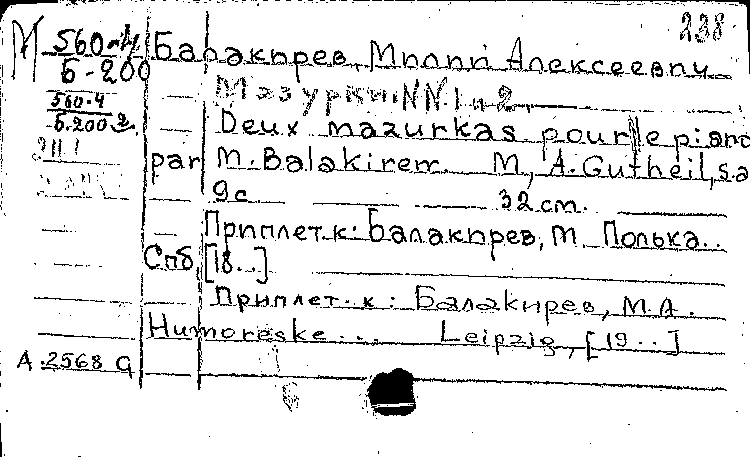 238
М 560-4 Балакирев, Милий Алексеевич
Б-200
Мазурки NN 1 и 2.
560-4
Б.200 д.
Deux mazurkas pour le piano
par M. Balakirew. М, A. Gutheil, s.a
9с 32 cm.
Приплет. к: Балакирев, М. Полька..
Спб, [18...]
Приплет. к: Балакирев, М.А.
Humoreske... Leipzig, [19..]
А.2568 g